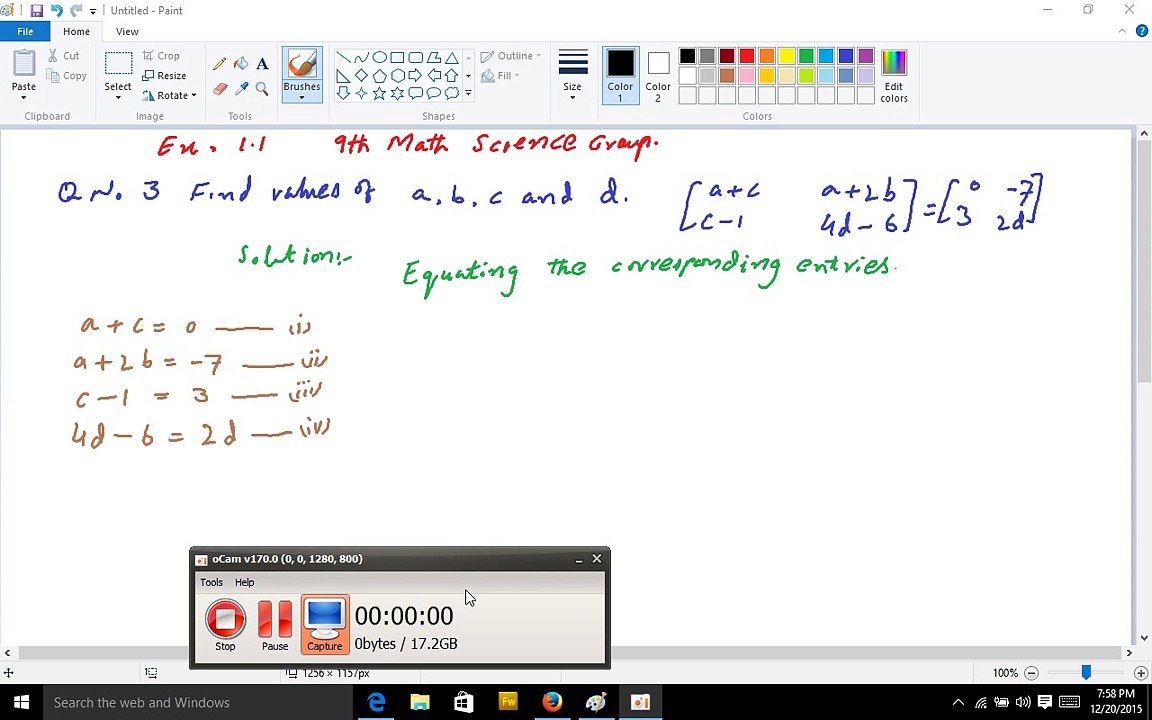 Untitled - Paint
File Home View
Paste Cut Copy Clipboard
Select Crop Resize Rotate Image
Tools
Brushes
Outline Fill Shapes
Size
Color 1 Color 2 Edit colors Colors
Ex. 1.1 9th Math Science Group.
Q No. 3 Find values of a, b, c and d. [a+c a+2b = [0 -7
c-1 4d-6] 3 2d]
Solution:-
Equating the corresponding entries.
a + c = 0 —— (i)
a + 2b = -7 —— (ii)
c - 1 = 3 —— (iii)
4d - 6 = 2d —— (iv)
oCam v170.0 (0, 0, 1280, 800)
Tools Help
00:00:00
0bytes / 17.2GB
Stop Pause Capture
1256 × 1157px 100%
Search the web and Windows
Fw
7:58 PM
12/20/2015